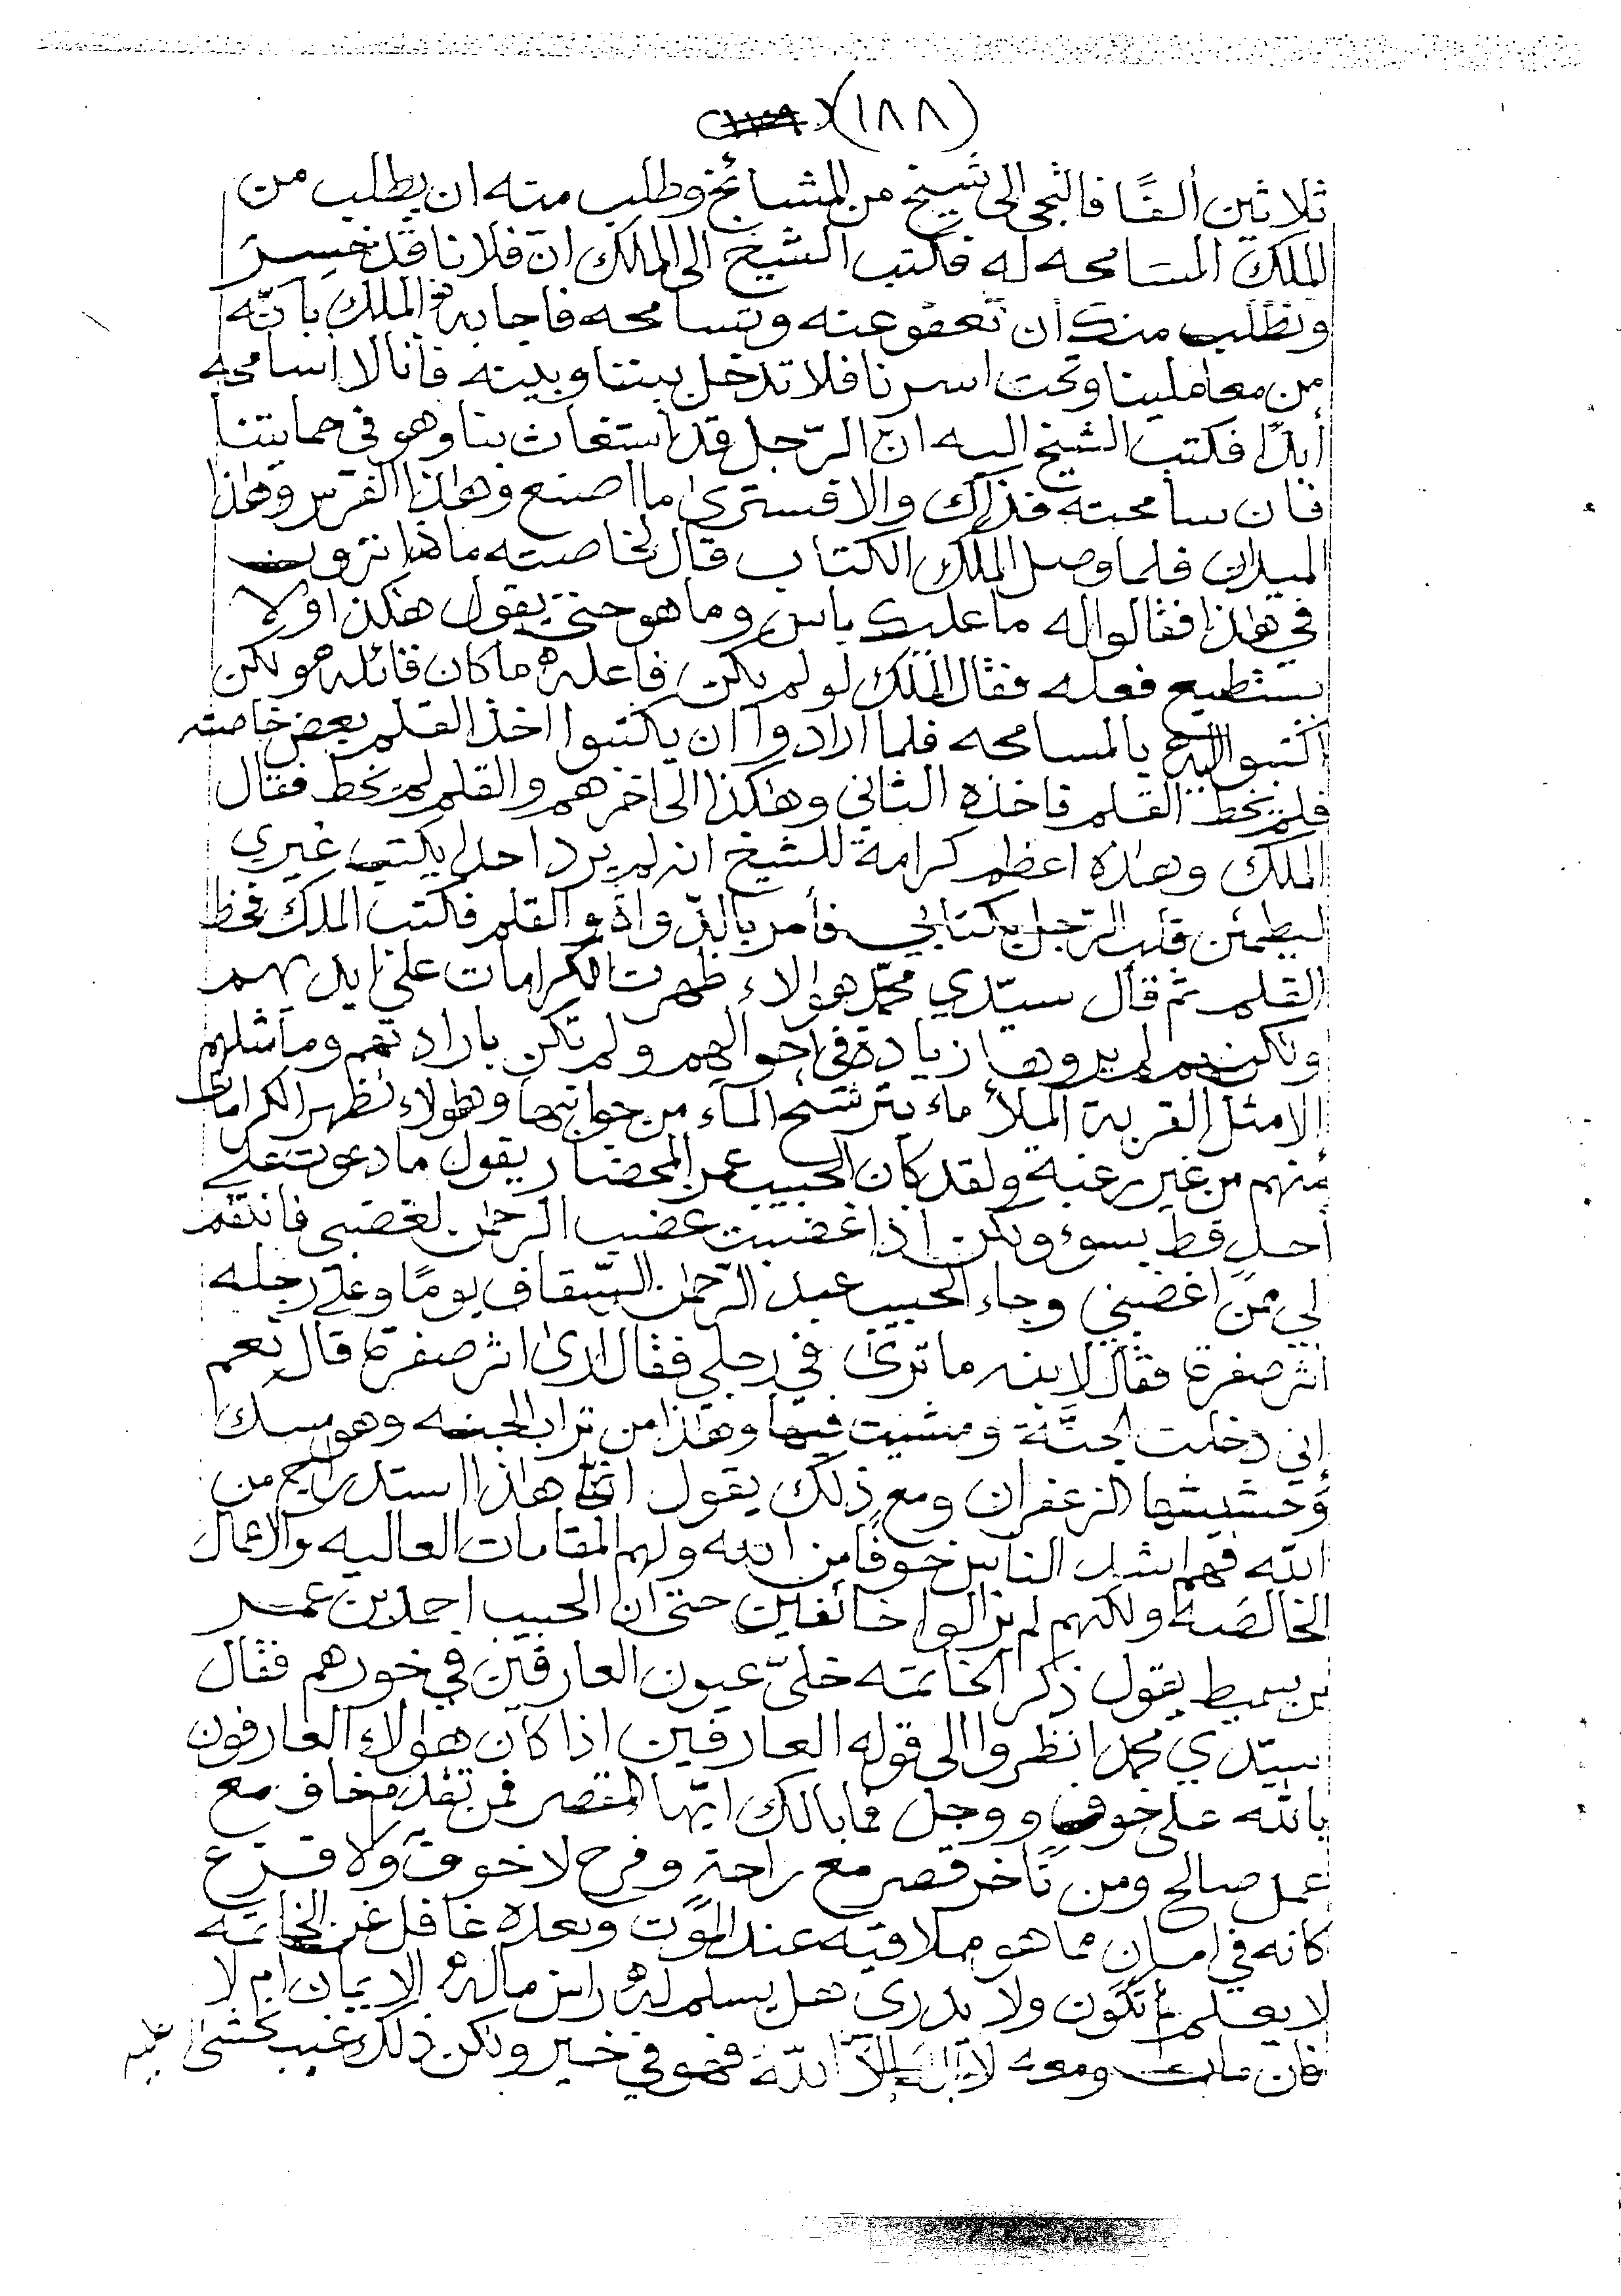 (١٨٨)
ثلاثين ألفًا فالتجى الى شيخ من المشائخ وطلب منه ان يطلب من
الملك المسامحه له فكتب الشيخ الى المالك انّ فلانا قد خسِرَ
ونطلب منك أن تعفو عنه وتسامحه فاجابه الملك بانّه
من معاملينا وتحت اسرنا فلا تدخل بيننا وبينه فأنا لا اسامحه
أبدًا فكتب الشيخ اليه انّ الرّجل قد استغاث بنا وهو في حمايتنا
فان سامحته فذاك والا فسترى ما اصنع وهذا الفرس وهذا
الميدان فلما وصل الملك الكتاب قال لخاصته ماذا ترون
في هذا فقالوا له ما عليك باس وما هو حتى يقول هكذا ولا
يستطيع فعله فقال الملك لو لم يكن فاعله ما كان قائله ولكن
اكتبوا اليه بالمسامحه فلما ارادوا ان يكتبوا اخذ القلم بعض خاصته
فلم يخط القلم فاخذه الثاني وهكذا الى اخرهم والقلم لم يخط فقال
الملك وهذه اعظم كرامة للشيخ انه لم يرد احدا يكتب غيري
ليطمئن قلب الرّجل بكتابي فأمر بالدّواة والقلم فكتب الملك فخط
القلم ثم قال سيّدي محمّد هولاء ظهرت الكرامات على ايديهم
ولكنهم لم يروها زيادة في احوالهم ولم تكن بارادتهم وما مثلهم
الا مثل القربة الملأ ماء يترشّح الماء من جوانبها وهولاء تظهر الكرامات
منهم من غير رغبة ولقد كان الحبيب عمر المحضار يقول ما دعوت على
أحدٍ قط بسوء ولكن اذا غضبت غضب الرحمن لغضبي فانتقم
لي ممن اغضبني وجاء الحبيب عبد الرّحمن السّقاف يومًا وعلى رجله
اثر صفرة فقال لابنه ما ترى في رجلي فقال ارى اثر صفرة قال نعم
إني دخلت الجنّة ومشيت فيها وهذا من تراب الجنه وهو مسك
وحشيشها الزعفران ومع ذلك يقول اخاف هذا استدراج من
الله فهم اشد الناس خوفًا من الله ولهم المقامات العاليه والاعمال
الخالصه ولكنهم لم يزالوا خائفين حتى ان الحبيب احمد بن عمر
بن سميط يقول ذكر الخاتمه خلىّ عيون العارفين في خورهم فقال
سيّدي محمد انظروا الى قوله العارفين اذا كان هولاء العارفون
بالله على خوف ووجل فما بالك ايّها المقصر فمن تقدم خاف مع
عمل صالح ومن تأخر قصر مع راحة وفرح لا خوف ولا فزع
كانه في امان مما هو ملاقيه عند الموت وبعده غافل عن الخاتمه
لا يعلم ما تكون ولا يدري هل يسلم له راس ماله الايمان ام لا
فان مات ومعه لا اله إلّا اللهُ فهو في خير ولكن ذلك غيب يخشى عليه